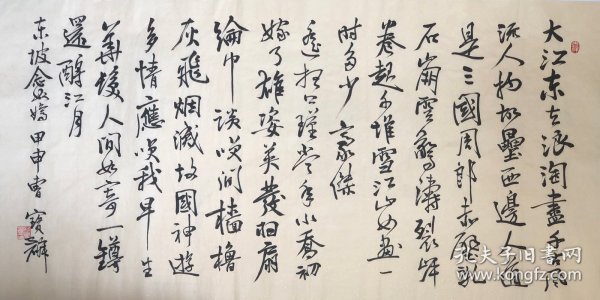 大江东去浪淘盡千古風
流人物故壘西邊人道
是三國周郎赤壁亂
石崩雲驚濤裂岸
卷起千堆雪江山如畫一
時多少豪傑
遙想公瑾當年小喬初
嫁了雄姿英發羽扇
綸巾談笑间檣櫓
灰飛烟滅故國神遊
多情應笑我早生
華髮人间如寄一鐏
還酹江月
东坡念奴嬌甲申曹寶麟
孔夫子旧书网
book.kongfz.com